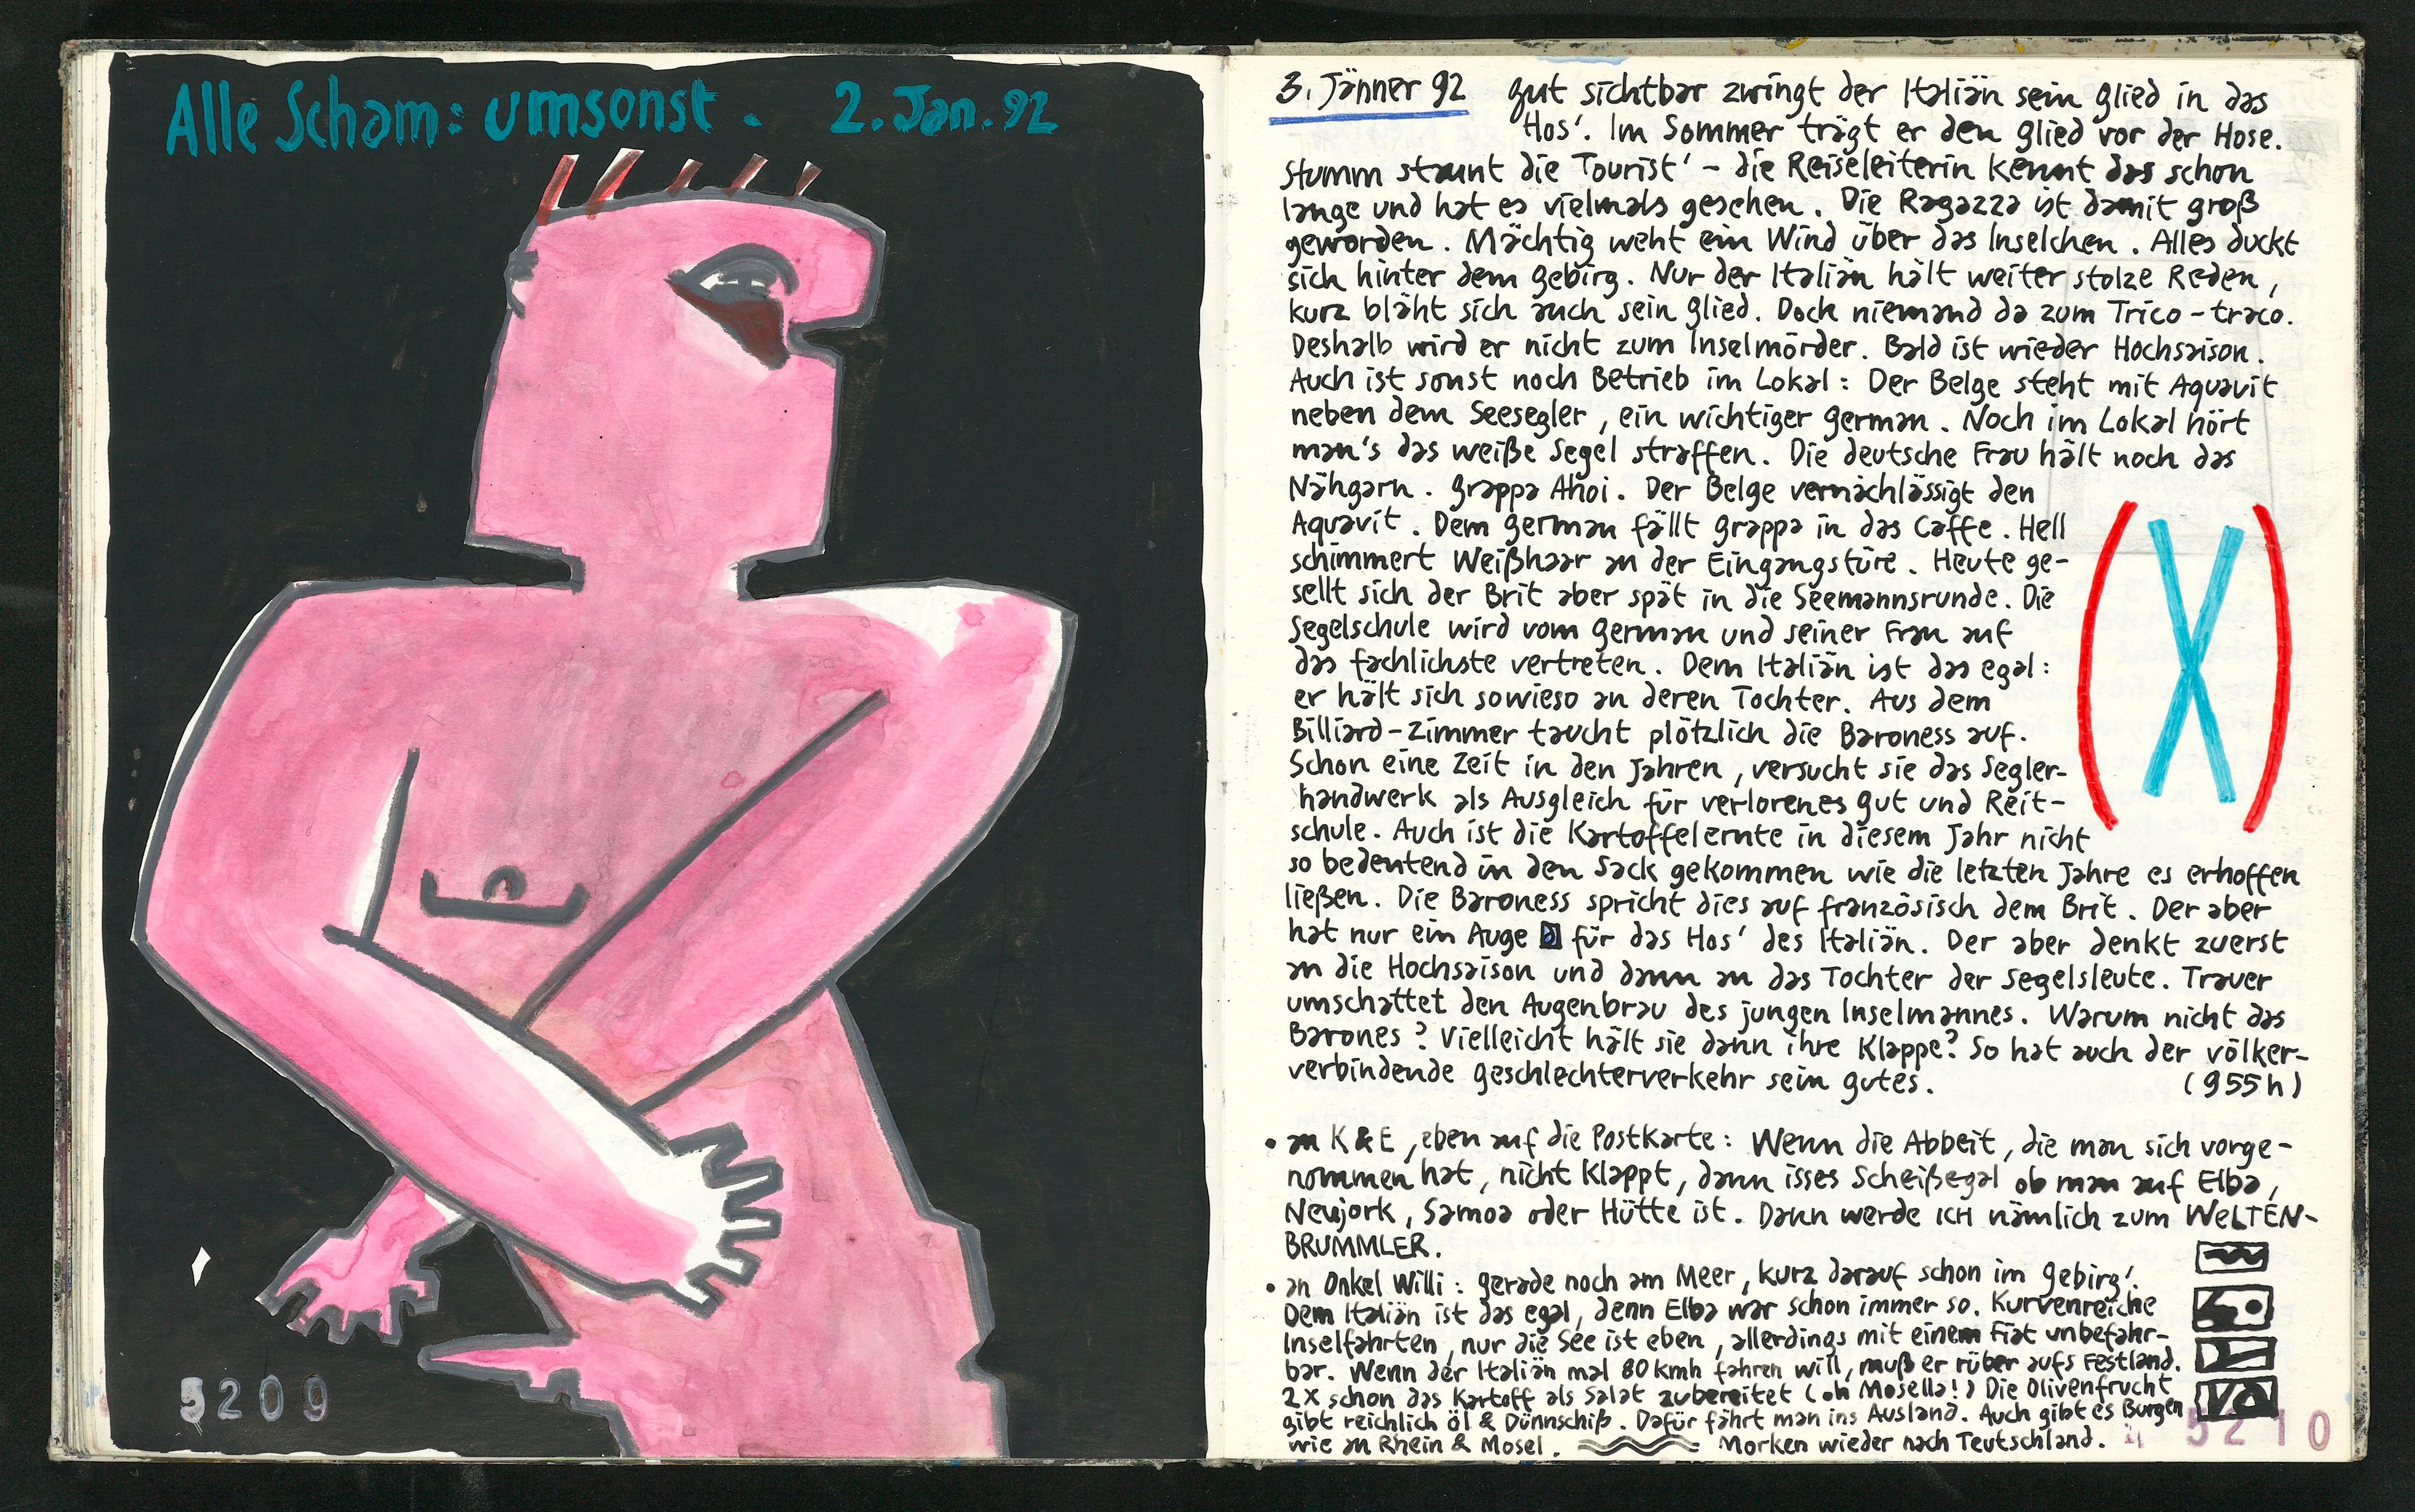 Alle Scham: umsonst. 2. Jan. 92
5209
3. Jänner 92 gut sichtbar zwingt der Italiän sein glied in das
Hos'. Im Sommer trägt er den glied vor der Hose.
Stumm staunt die Tourist' – die Reiseleiterin kennt das schon
lange und hat es vielmals gesehen. Die Ragazza ist damit groß
geworden. Mächtig weht ein Wind über das Inselchen. Alles duckt
sich hinter dem gebirg. Nur der Italiän hält weiter stolze Reden,
kurz bläht sich auch sein glied. Doch niemand da zum Trico-traco.
Deshalb wird er nicht zum Inselmörder. Bald ist wieder Hochsaison.
Auch ist sonst noch Betrieb im Lokal: Der Belge steht mit Aquavit
neben dem Seesegler, ein wichtiger german. Noch im Lokal hört
man's das weiße Segel straffen. Die deutsche Frau hält noch das
Nähgarn. grappa Ahoi. Der Belge vernachlässigt den
Aquavit. Dem german fällt grappa in das Caffe. Hell
schimmert Weißhaar an der Eingangstüre. Heute ge-
sellt sich der Brit aber spät in die Seemannsrunde. Die
Segelschule wird vom german und seiner Frau auf
das fachlichste vertreten. Dem Italiän ist das egal:
er hält sich sowieso an deren Tochter. Aus dem
Billiard-Zimmer taucht plötzlich die Baroness auf.
Schon eine Zeit in den Jahren, versucht sie das Segler-
handwerk als Ausgleich für verlorenes gut und Reit-
schule. Auch ist die Kartoffelernte in diesem Jahr nicht
so bedeutend in den Sack gekommen wie die letzten Jahre es erhoffen
ließen. Die Baroness spricht dies auf französisch dem Brit. Der aber
hat nur ein Auge für das Hos' des Italiän. Der aber denkt zuerst
an die Hochsaison und dann an das Tochter der Segelsleute. Trauer
umschattet den Augenbrau des jungen Inselmannes. Warum nicht das
Barones? Vielleicht hält sie dann ihre Klappe? So hat auch der völker-
verbindende geschlechterverkehr sein gutes. (955h)
(X)
• an K & E, eben auf die Postkarte: Wenn die Abbeit, die man sich vorge-
nommen hat, nicht klappt, dann isses Scheißegal ob man auf Elba,
Newjork, Samoa oder Hütte ist. Dann werde ICH nämlich zum WELTEN-
BRUMMLER.
• an Onkel Willi: gerade noch am Meer, kurz darauf schon im gebirg'.
Dem Italiän ist das egal, denn Elba war schon immer so. Kurvenreiche
Inselfahrten, nur die See ist eben, allerdings mit einem Fiat unbefahr-
bar. Wenn der Italiän mal 80 kmh fahren will, muß er rüber aufs Festland.
2X schon das Kartoff als Salat zubereitet (oh Mosella!) Die Olivenfrucht
gibt reichlich öl & Dünnschiß. Dafür fährt man ins Ausland. Auch gibt es Burgen
wie an Rhein & Mosel. Morken wieder nach Teutschland.
5210